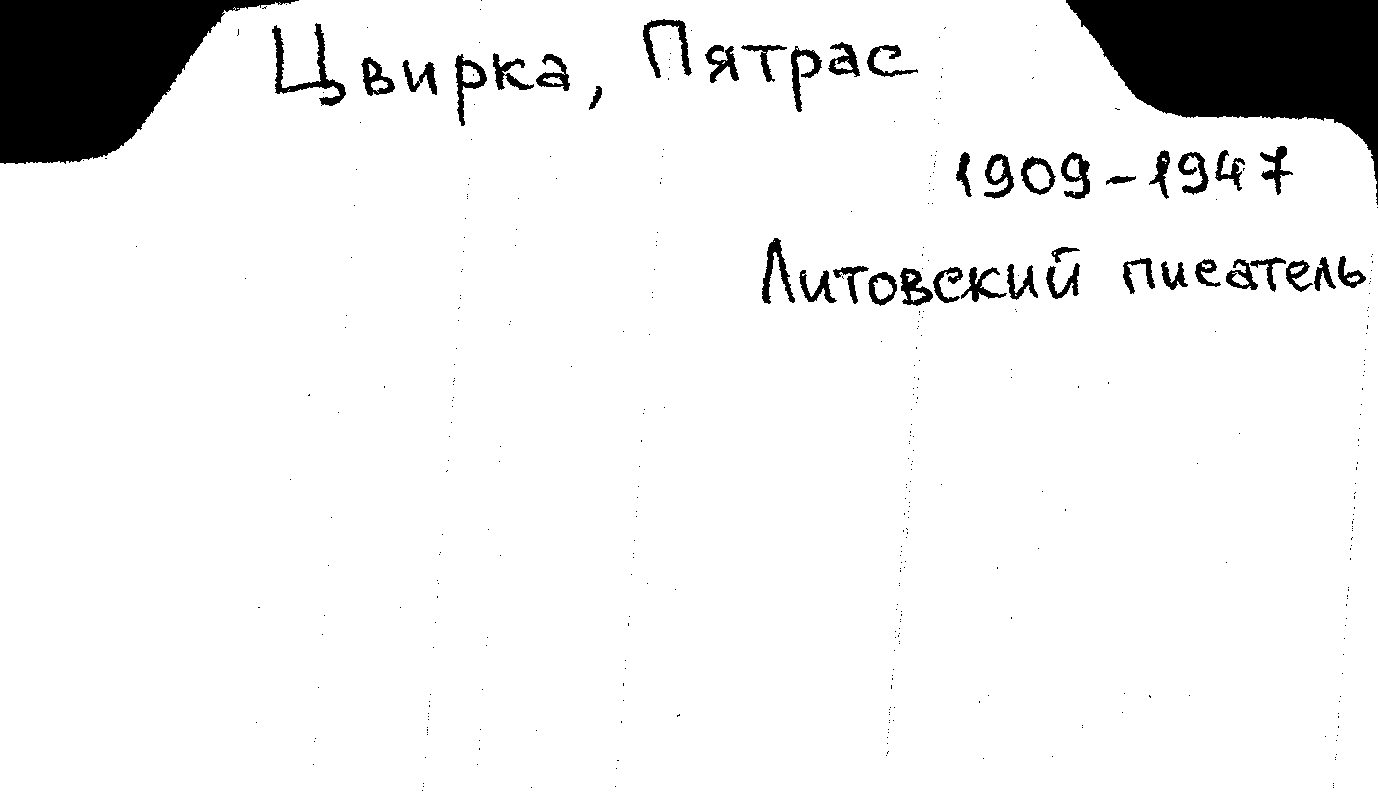 Цвирка, Пятрас
1909-1947
Литовский писатель